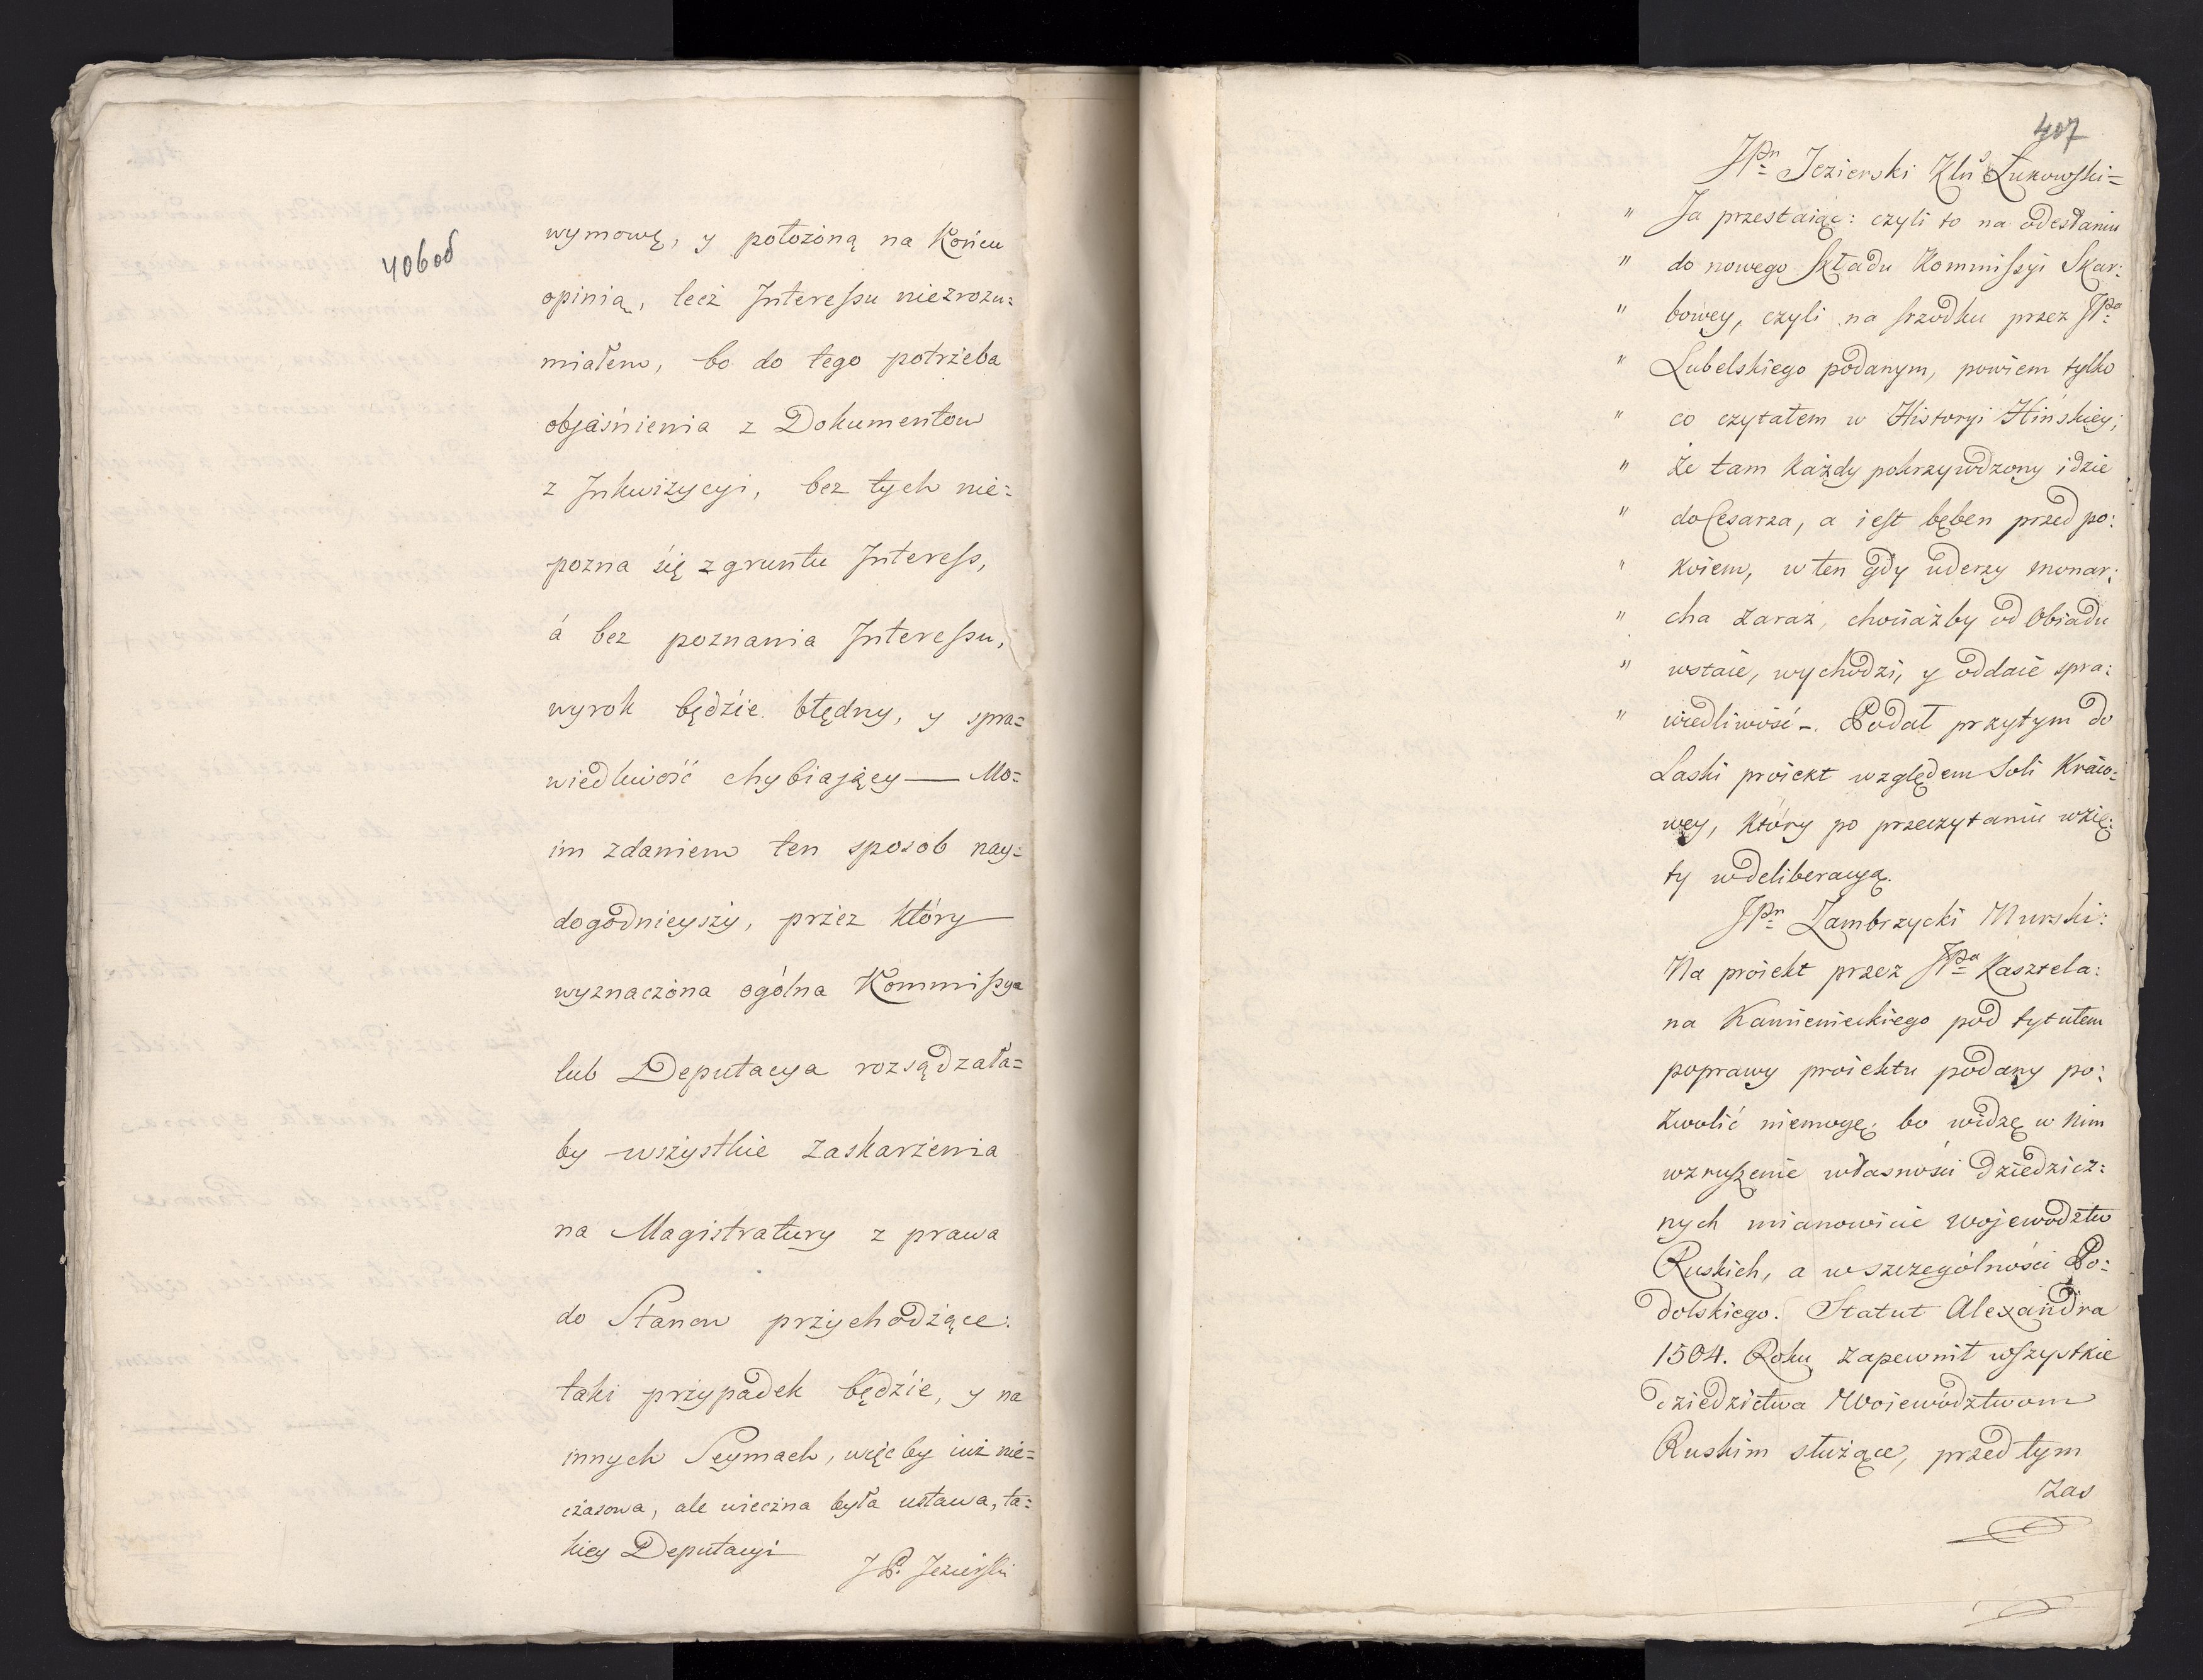 406об
wymowę, y położoną na Końcu
opinią, lecż Interessu niezrozu=
miałem, bo do tego potrżeba
objaśnienia z Dokumentow
z Inkwiżycyi, bez tych nie=
pozna się z gruntu Interess,
á bez poznania Interessu,
wyrok będżie błędny, y spra=
wiedliwość chybiający — Mo=
im zdaniem ten sposob nay=
dogodnieyszy, przez który
wyznaczona ogólna Kommissya
lub Deputacya rozsądzała=
by wszystkie zaskarżenia
na Magistratury z prawa
do Stanow przychodżące:
taki przypadek będzie, y na
innych Seymach, więc by już nie=
czasowa, ale wieczna była ustawa, ta=
kiey Deputacyi
J P. Jezierski
407
JPn Jezierski Klń Łukowski=
" Ja przestaiąc: czyli to na odesłaniu
" do nowego składu Kommissyi Skar:
" bowey, czyli na srzodku przez JPa
" Lubelskiego podanym, powiem tylko
" co czytałem w Historyi Hińskiey;
" Że tam każdy pokrzywdzony idzie
" do Cesarza, a iest bęben przed po:
" koiem, w ten gdy uderzy monar:
" cha zaraz, chociażby od Obiadu
" wstaie, wychodzi, y oddaie spra:
" wiedliwość –. Podał przytym do
Laski proiekt względem Soli Kraio:
wey, który po przeczytaniu wzię:
ty w deliberacyą.
JPn Zambrzycki Nurski:
Na proiekt przez JPa Kasztela:
na Kamienieckiego pod tytułem
poprawy proiektu podany po:
zwolić niemogę; bo widzę w nim
wzruszenie własności Dziedzicz:
nych mianowicie wojewodztw
Ruskich, a w szczególności Po:
dolskiego. Statut Alexandra
1504. Roku zapewnił wszystkie
dziedzictwa Woiewództwom
Ruskim służące, przed tym
zas